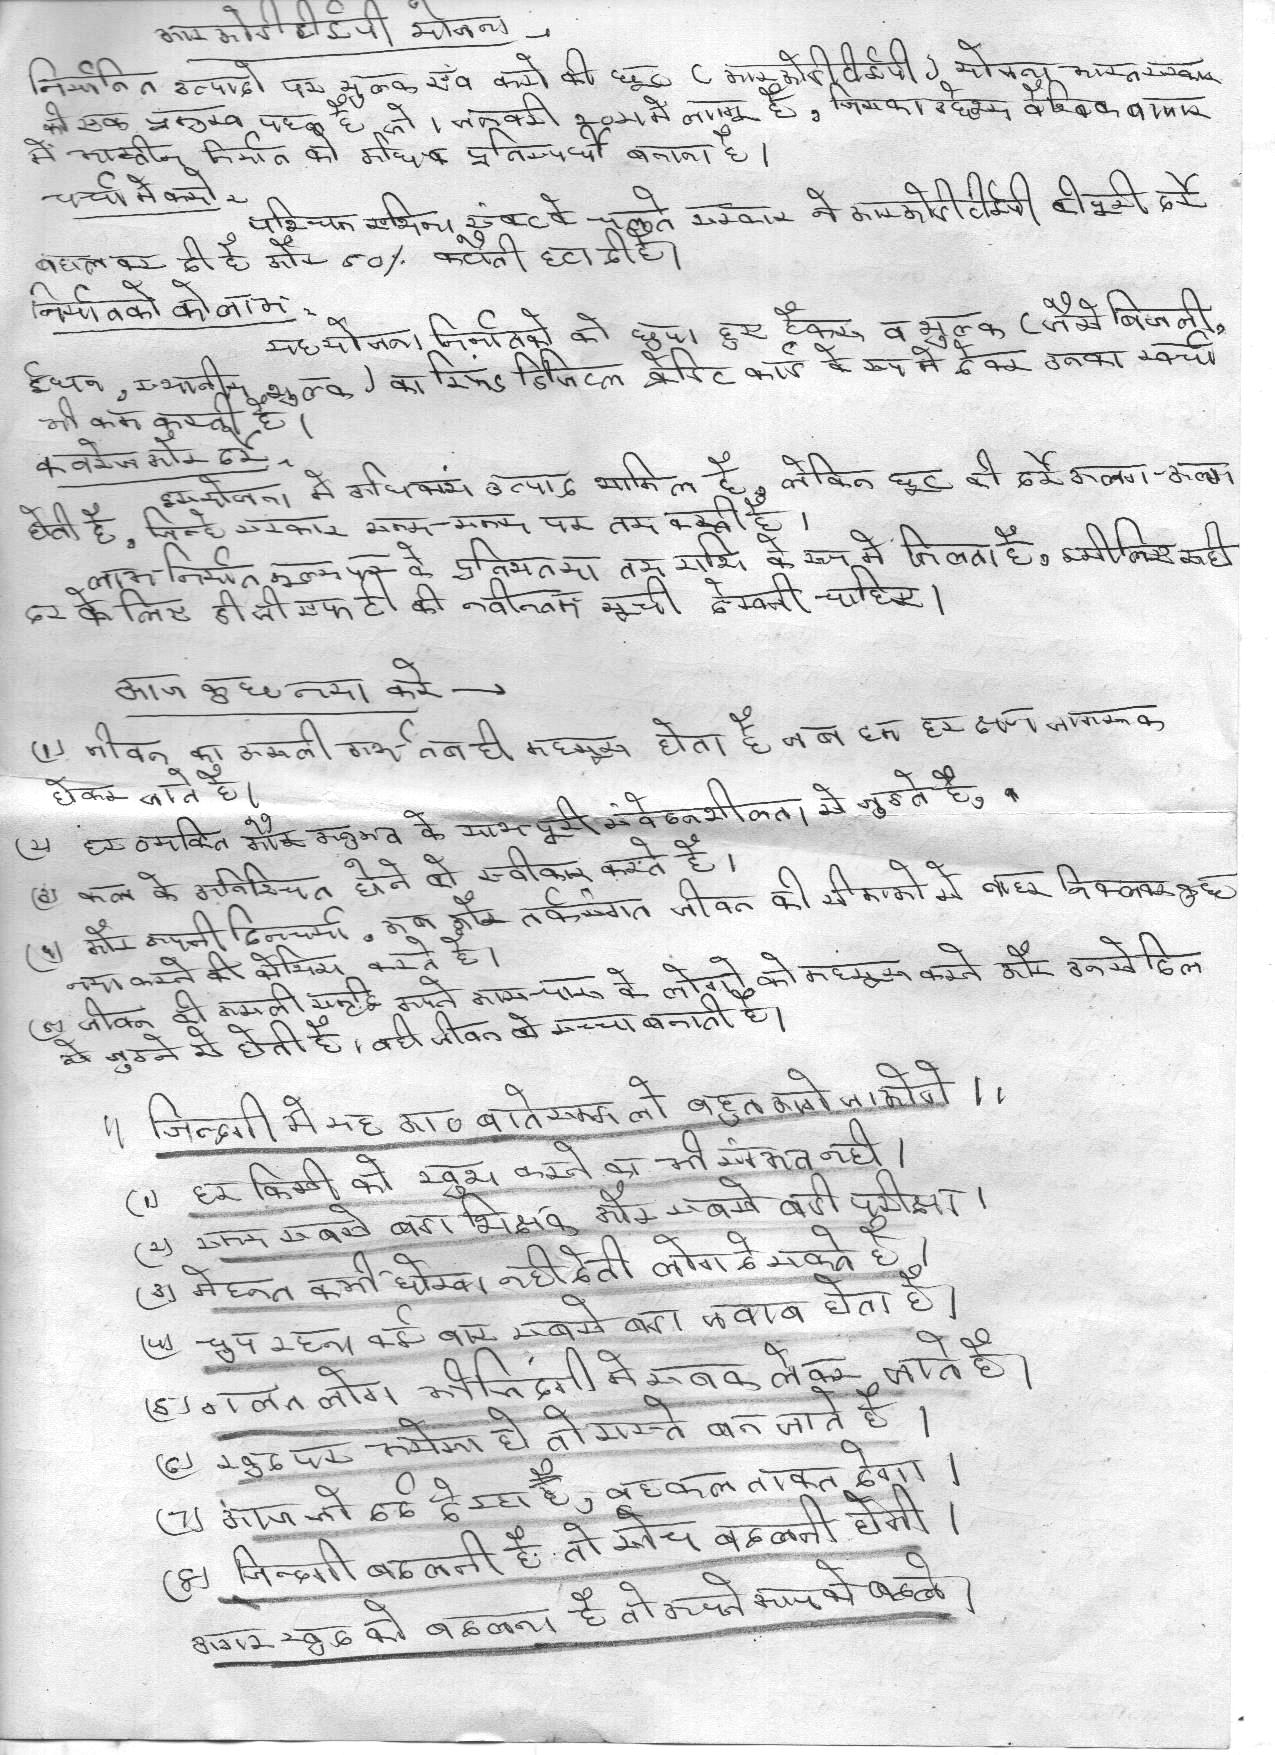 आरओडीटीईपी योजना →
निर्यातित उत्पादो पर शुल्क एंव करो की छूट ( आरओडीटीईपी ) योजना भारत सरकार
की एक प्रमुख पहल है जो 1 जनवरी २०२१ में लागू है, जिसका उद्देश्य वैश्विक बाजार
में भारतीय निर्यात को अधिक प्रतिस्पर्धी बनाना है।
चर्चा में क्यो -
पश्चिम एशिया संकट के चलते सरकार ने आरओडीटीईपी की पूरी दरें
बहाल कर दी है और ५०% कटौती हटा दी है।
निर्यातको को लाभ -
यह योजना निर्यातको को छुपा हुए टैक्स व शुल्क ( जैसे बिजली,
ईधन, स्थानीय शुल्क ) का रिफंड डिजिटल क्रेडिट कार्ड के रूप मे देकर उनका खर्चा
भी कम करती है।
कवरेज और दरे -
इस योजना में अधिकांस उत्पाद शामिल है, लेकिन छूट की दरें अलग-अलग
होती है, जिन्हे सरकार समय-समय पर तय करती है।
लाभ निर्यात मूल्य पर के प्रतिशत या तय राशि के रूप में मिलता है, इसीलिए सही
दर के लिए डीजीएफटी की नवीनतम सूची देखनी चाहिए।
आज कुछ नया करे →
(१) जीवन का असली अर्थ तब ही महसूस होता है जब हम हर क्षण जागरूक
होकर जीते है।
(२) हर व्यक्ति और अनुभव के साथ पूरी संवेदनशीलता से जुडते है,
(३) कल के अनिश्चित होने को स्वीकार करते है।
(४) और अपनी दिनचर्या, भय और तर्कसंगत जीवन की सीमाओ से बाहर निकलकर कुछ
नया करने की कोशिश करते है।
(५) जीवन की असली समृद्धि अपने आस-पास के लोगो को महसूस करने और उनसे दिल
से जुडने से होती है। वही जीवन को सच्चा बनाती है।
।। जिन्दगी में यह आठ बाते समझ लो बहुत आगे जाओगे ।।
(१) हर किसी को खुश करने का भी संभव नही।
(२) समय सबसे बडा शिक्षक और सबसे बडी परीक्षा।
(३) मेहनत कभी धोखा नही देती लोग दे सकते है।
(४) चुप रहना कई बार सबसे बडा जवाब होता है।
(५) गलत लोग भी जिंदगी में सबक लेकर जाते है।
(६) खुद पर भरोसा हो तो रास्ते बन जाते है।
(7) आज जो दर्द दे रहा है, वह कल ताकत देगा।
(8) जिन्दगी बदलनी है तो सोच बदलनी होगी।
अगर खुद को बदलना है तो अपने आप को बदले।